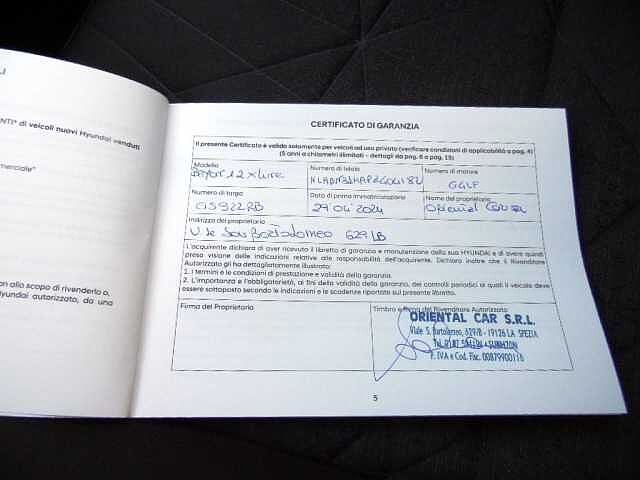 LI
NTI* di veicoli nuovi Hyundai venduti
merciale"
on allo scopo di rivenderlo o,
Hyundai autorizzato, da una
CERTIFICATO DI GARANZIA
Il presente Certificato è valido solamente per veicoli ad uso privato (verificare condizioni di applicabilità a pag. 4)
(5 anni a chilometri illimitati - dettagli da pag. 6 a pag. 15)
Modello
Numero di telaio
Numero di motore
1.2 x Line
G4LF
Numero di targa
Data di prima immatricolazione
Nome del proprietario
GS922RB
29 04 2024
Oriental Car
Indirizzo del proprietario
V.le San Bartolomeo 629 LB
L'acquirente dichiara di aver ricevuto il libretto di garanzia e manutenzione della sua HYUNDAI e di avere quindi
presa visione delle indicazioni relative alle responsabilità dell'acquirente. Dichiara inoltre che il Rivenditore
Autorizzato gli ha dettagliatamente illustrato:
1. I termini e le condizioni di prestazione e validità della garanzia.
2. L'importanza e l'obbligatorietà, ai fini della validità della garanzia, dei controlli periodici ai quali il veicolo deve
essere sottoposto secondo le indicazioni e le scadenze riportate sul presente libretto.
Firma del Proprietario
Timbro e Firma del Rivenditore Autorizzato
ORIENTAL CAR S.R.L.
Viale S. Bartolomeo, 629/B - 19126 LA SPEZIA
P. IVA e Cod. Fisc.
5